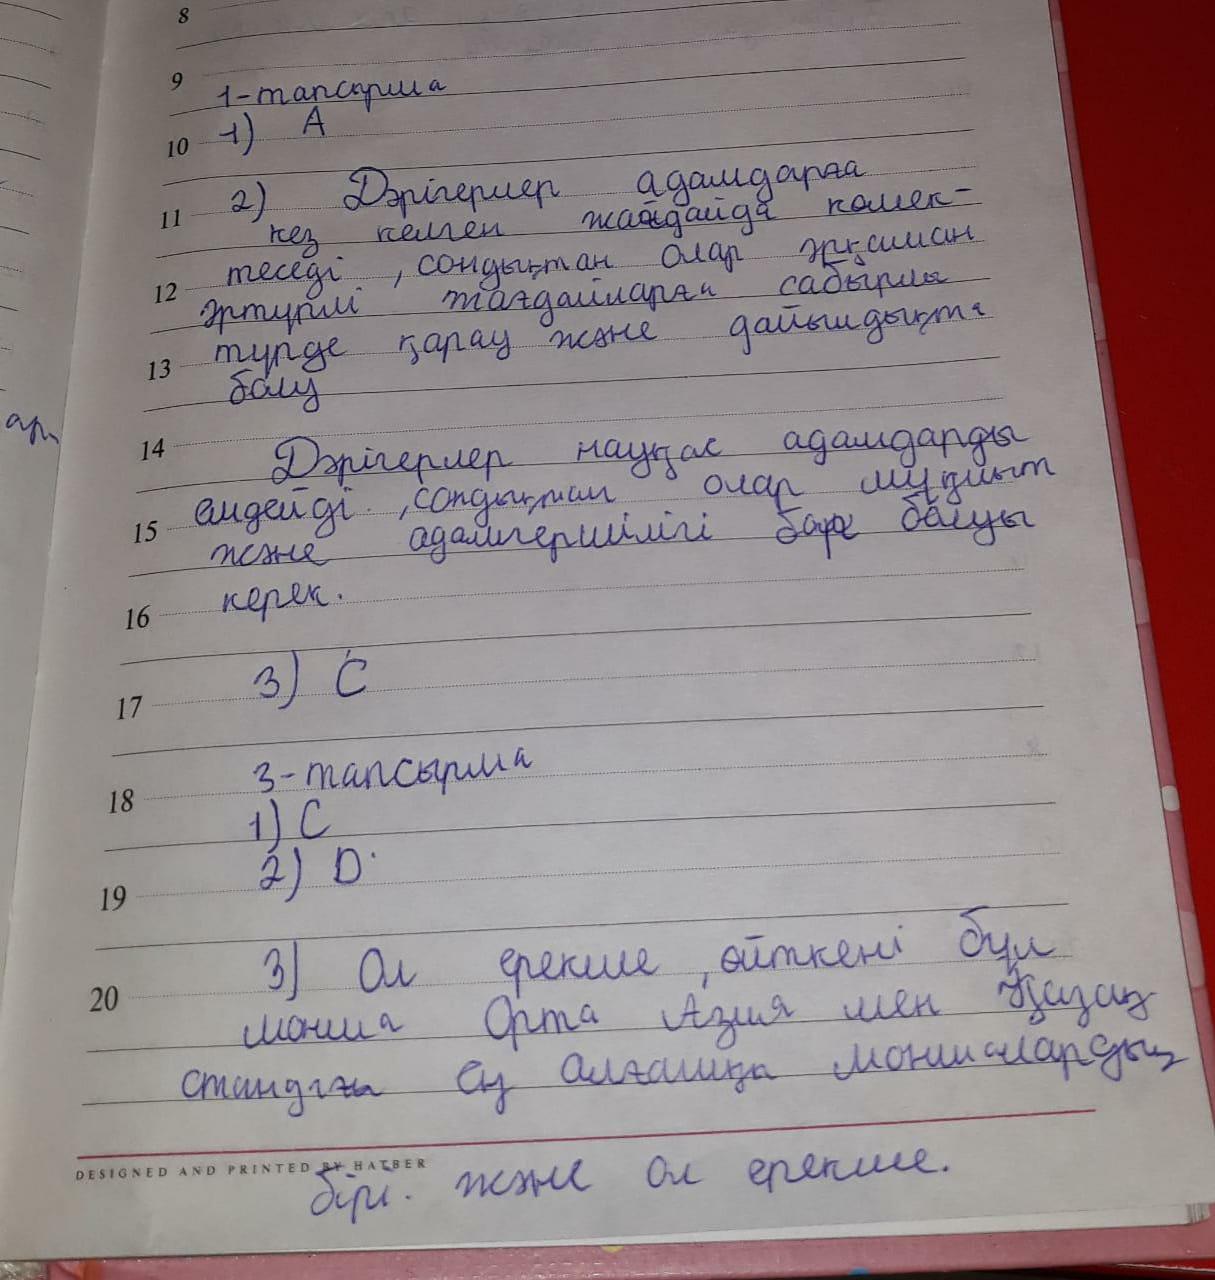 8
9
1-тапсырма
10
1) А
11
2) Дәрігерлер адамдарға
кез келген жағдайда көмек-
12
теседі, сондықтан олар әрқашан
әртүрлі жағдайларға сабырлы
13
түрде қарау және дайындықта
болу
14
Дәрігерлер науқас адамдарды
15
емдейді, сондықтан олар мұқият
және адамгершілігі бар болуы
16
керек.
17
3) С
18
3-тапсырма
1) С
19
2) D
20
3) Ол ерекше, өйткені бұл
монша Орта Азия мен Қазақ
стандағы ең алғашқы моншалардың
DESIGNED AND PRINTED BY HATBER
бірі. және ол ерекше.
ар